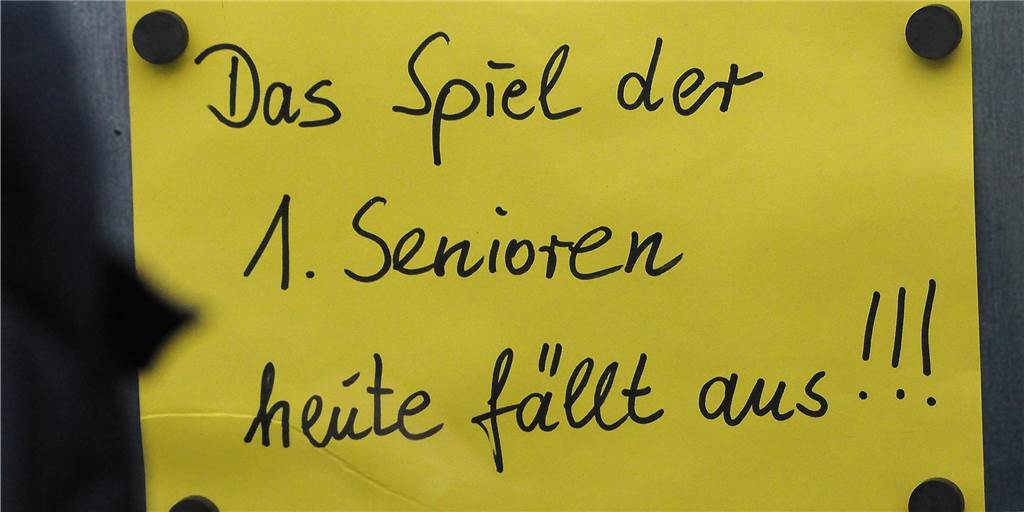 Das Spiel der
1. Senioren
heute fällt aus!!!